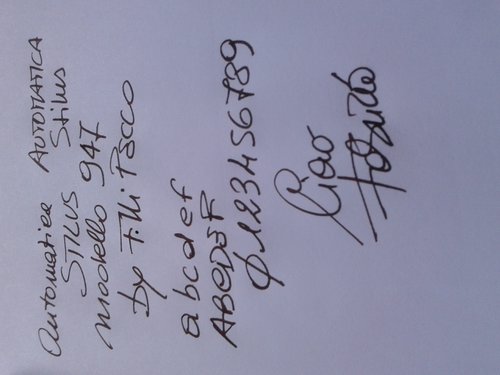 Automatica AUTOMATICA
STILUS Stilus
Modello 947
By F.lli Pacco
abcdef
ABCDEF
Ø123456789
Ciao